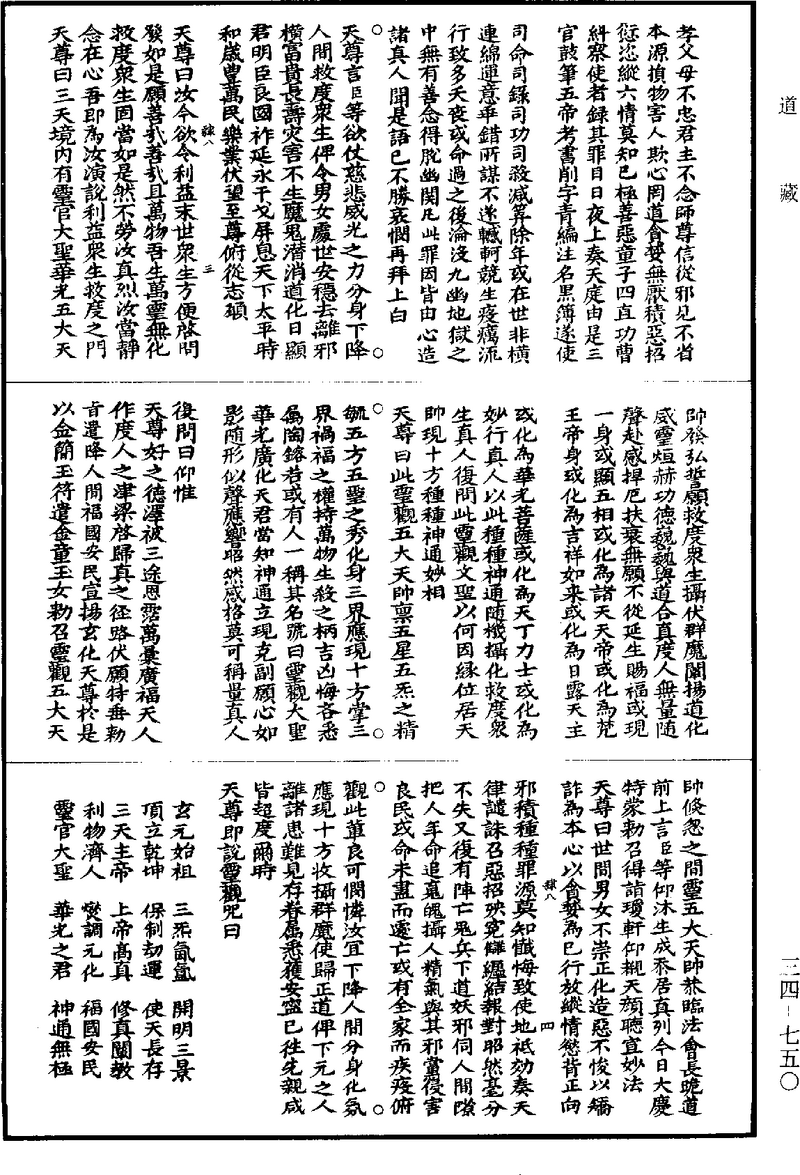 道藏
孝父母不忠君主不念師尊信從邪見不省
本源損物害人欺心罔道貪婪無厭積惡招
愆恣縱六情莫知已極善惡童子四直功曹
糾察使者錄其罪目日夜上奏天庭由是三
官鼓筆五帝考書削字青編注名黑簿遂使
司命司錄司功司殺減筭除年或在世非橫
連綿運意乖錯所謀不遂轗軻競生疫癘流
行致多夭喪或命過之後淪沒九幽地獄之
中無有善念得脫幽關凡此罪因皆由心造
諸真人聞是語已不勝哀憫再拜上白
天尊言臣等欲仗慈悲威光之力分身下降
人間救度衆生俾令男女處世安穩去離邪
橫富貴長壽灾害不生魔鬼潛消道化日顯
君明臣良國祚延永干戈屏息天下太平時
和歲豐萬民樂業伏望至尊俯從志願
隸八　三
天尊曰汝今欲令利益末世衆生方便啓問
發如是願善哉善哉且萬物吾生萬靈無化
救度衆生固當如是然不勞汝真烈汝當靜
念在心吾即為汝演說利益衆生救度之門
天尊曰三天境内有靈官大聖華光五大天
帥發弘誓願救度衆生攝伏群魔闡揚道化
威靈烜赫功德巍巍與道合真度人無量隨
聲赴感捍厄扶衰無願不從延生賜福或現
一身或顯五相或化為諸天天帝或化為梵
王帝身或化為吉祥如來或化為日露天主
或化為華光菩薩或化為天丁力士或化為
妙行真人以此種種神通随機攝化救度衆
生真人復問此靈觀文聖以何因緣位居天
帥現十方種種神通妙相
天尊曰此靈觀五大天帥稟五星五炁之精
毓五方五靈之秀化身三界應現十方掌三
界禍福之權持萬物生殺之柄吉凶悔吝悉
屬陶鎔若或有人一稱其名號曰靈觀大聖
華光廣化天君當知神通立現克副願心如
影隨形似聲應響昭然感格莫可稱量真人
復問曰仰惟
天尊好之德澤被三途恩霑萬彙廣福天人
作度人之津梁啓歸真之徑路伏願特垂勑
旨遣降人間福國安民宣揚玄化天尊於是
以金簡玉符遣金童玉女勑召靈觀五大天
帥倐忽之間靈五大天帥恭臨法會長跪道
前上言臣等仰沐生成忝居真列今日大慶
特蒙勑召得詣瓊軒仰覩天顏聽宣妙法
天尊曰世間男女不崇正化造惡不悛以矯
詐為本心以貪婪為已行放縱情慾背正向
隸八　四
邪積種種罪源莫知懺悔致使地祗劾奏天
律譴誅召惡招殃寃讎纒結報對昭然毫分
不失又復有陣亡鬼兵下道妖邪伺人間隙
把人年命追寃魄攝人精氣與其邪黨侵害
良民或命未盡而遷亡或有全家而疾疫俯
觀此輩良可憫憐汝宜下降人間分身化氣
應現十方收攝群魔使歸正道俾下元之人
離諸患難見存眷屬悉獲安寧已往先親咸
皆超度爾時
天尊即說靈觀咒曰
玄元始祖　三炁氤氲　開明三景
頂立乾坤　保制劫運　使天長存
三天主帝　上帝高真　修真闡教
利物濟人　燮調元化　福國安民
靈官大聖　華光之君　神通無極
三四－七五〇